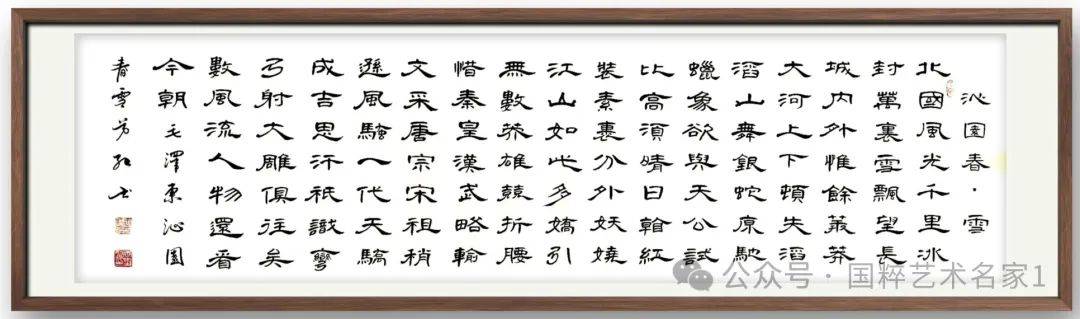 沁園春·雪
北國風光千里冰
封萬裏雪飄望長
城内外惟餘莽莽
大河上下頓失滔
滔山舞銀蛇原馳
蠟象欲與天公試
比高須晴日看紅
裝素裹分外妖嬈
江山如此多嬌引
無數英雄競折腰
惜秦皇漢武略輸
文采唐宗宋祖稍
遜風騷一代天驕
成吉思汗祇識彎
弓射大雕俱往矣
數風流人物還看
今朝毛澤東沁園
春雪书
公众号·国粹艺术名家1